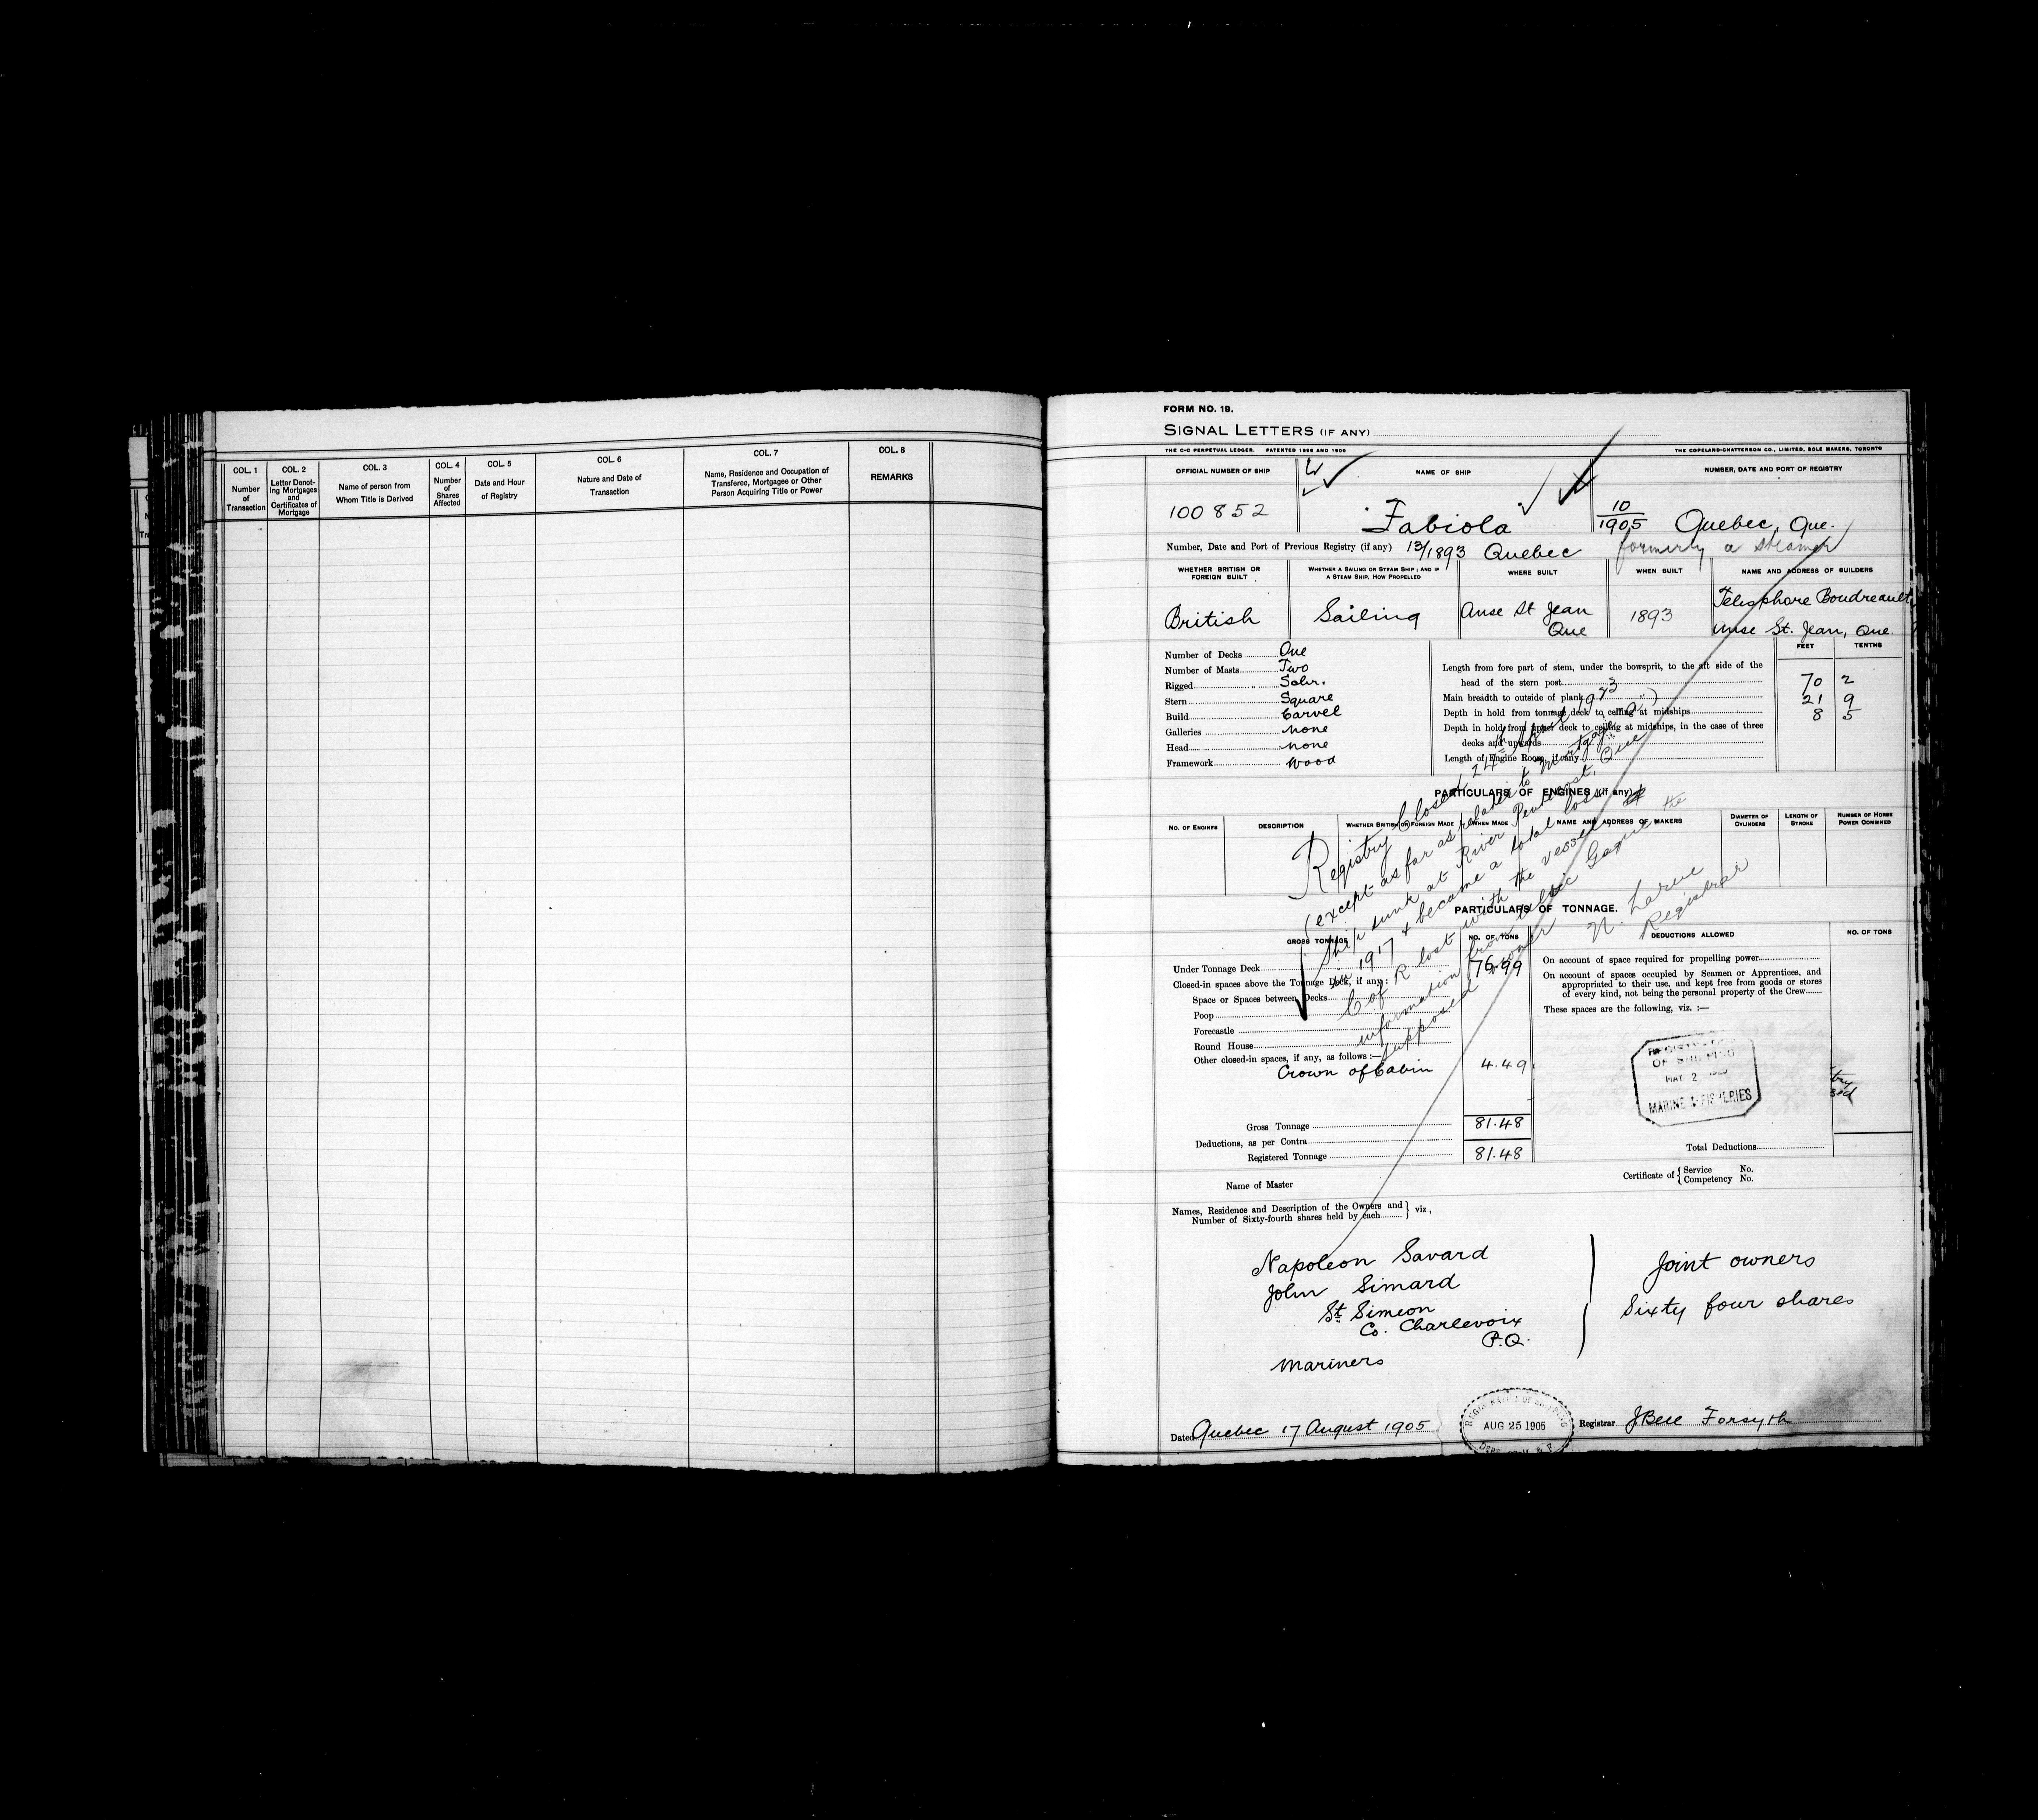 COL. 1
Number
of
Transaction
COL. 2
Letter Denot-
ing Mortgages
and
Certificates of
Mortgage
COL. 3
Name of person from
Whom Title is Derived
COL. 4
Number
of
Shares
Affected
COL. 5
Date and Hour
of Registry
COL. 6
Nature and Date of
Transaction
COL. 7
Name, Residence and Occupation of
Transferee, Mortgagee or Other
Person Acquiring Title or Power
COL. 8
REMARKS
FORM NO. 19.
SIGNAL LETTERS (IF ANY)
THE C-C PERPETUAL LEDGER. PATENTED 1896 AND 1900
THE COPELAND-CHATTERSON CO., LIMITED, SOLE MAKERS, TORONTO
OFFICIAL NUMBER OF SHIP
NAME OF SHIP
NUMBER, DATE AND PORT OF REGISTRY
100852
Fabiola
10/1905 Quebec, Que.
Number, Date and Port of Previous Registry (if any) 13/1893 Quebec formerly a steamer
WHETHER BRITISH OR
FOREIGN BUILT
WHETHER A SAILING OR STEAM SHIP; AND IF
A STEAM SHIP, HOW PROPELLED
WHERE BUILT
WHEN BUILT
NAME AND ADDRESS OF BUILDERS
British
Sailing
Anse St Jean
Que
1893
Telesphore Boudreault
Anse St. Jean, Que.
Number of Decks One
Number of Masts Two
Rigged Schr.
Stern Square
Build Carvel
Galleries none
Head none
Framework Wood
FEET TENTHS
Length from fore part of stem, under the bowsprit, to the aft side of the
head of the stern post 70 2
Main breadth to outside of plank 21 9
Depth in hold from tonnage deck to ceiling at midships 8 5
Depth in hold from upper deck to ceiling at midships, in the case of three
decks and upwards
Length of Engine Room, if any
PARTICULARS OF ENGINES (if any)
NO. OF ENGINES
DESCRIPTION
WHETHER BRITISH OR FOREIGN MADE
WHEN MADE
NAME AND ADDRESS OF MAKERS
DIAMETER OF
CYLINDERS
LENGTH OF
STROKE
NUMBER OF HORSE
POWER COMBINED
Registry Closed 24th April 1923
(except as far as relates to Mortgage "A")
Ship sunk at River Pentecost, Que
in 1917 & became a total loss
C of R lost with the vessel
information from Gagne the
supposed owner
N. Larue
Registrar
PARTICULARS OF TONNAGE.
GROSS TONNAGE
NO. OF TONS
DEDUCTIONS ALLOWED
NO. OF TONS
Under Tonnage Deck 76.99
Closed-in spaces above the Tonnage Deck, if any:
Space or Spaces between Decks
Poop
Forecastle
Round House
Other closed-in spaces, if any, as follows:—
Crown of Cabin 4.49
Gross Tonnage 81.48
Deductions, as per Contra
Registered Tonnage 81.48
On account of space required for propelling power
On account of spaces occupied by Seamen or Apprentices, and
appropriated to their use, and kept free from goods or stores
of every kind, not being the personal property of the Crew
These spaces are the following, viz. :—
OF SHIPPING
MAY 2
MARINE & FISHERIES
Total Deductions
Name of Master
Certificate of { Service No.
Competency No.
Names, Residence and Description of the Owners and } viz,
Number of Sixty-fourth shares held by each
Napoleon Savard
John Simard
St. Simeon
Co. Charlevoix
P.Q.
Mariners
Joint owners
Sixty four shares
Dated Quebec 17 August 1905
AUG 25 1905
Registrar J Bell Forsyth